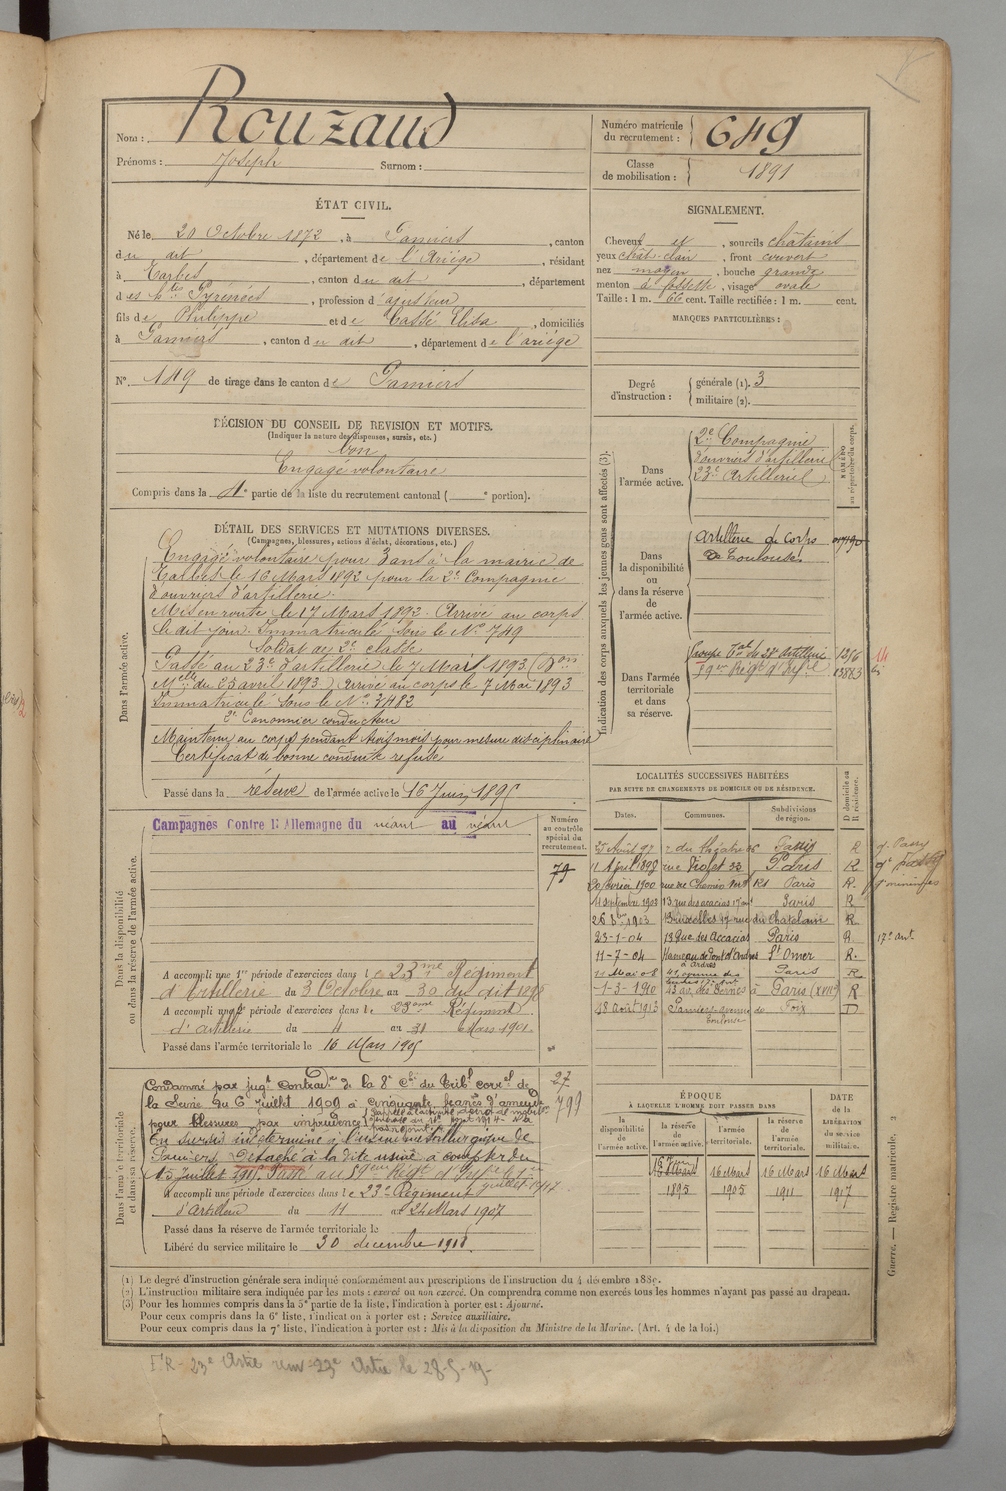 Nom : Rouzaud
Prénoms : Joseph Surnom :
Numéro matricule du recrutement : 649
Classe de mobilisation : 1891
ÉTAT CIVIL.
Né le 20 Octobre 1872, à Pamiers, canton
du dit, département de l'Ariège, résidant
à Tarbes, canton du dit, département
des Htes Pyrénées, profession d'ajusteur
fils de Philippe et de Cassé Elisa, domiciliés
à Pamiers, canton du dit, département de l'ariége
N° 149 de tirage dans le canton de Pamiers
SIGNALEMENT.
Cheveux et, sourcils châtains
yeux chât-clair, front couvert
nez moyen, bouche grande
menton à fossette, visage ovale
Taille : 1 m. 66 cent. Taille rectifiée : 1 m. cent.
MARQUES PARTICULIÈRES :
Degré d'instruction : générale (1). 3
militaire (2).
DÉCISION DU CONSEIL DE REVISION ET MOTIFS.
(Indiquer la nature des dispenses, sursis, etc.)
Bon
Engagé volontaire
Compris dans la 4e partie de la liste du recrutement cantonal ( e portion).
DÉTAIL DES SERVICES ET MUTATIONS DIVERSES.
(Campagnes, blessures, actions d'éclat, décorations, etc.)
Dans l'armée active.
Engagé volontaire pour 3 ans à la mairie de
Tarbes le 16 Mars 1892 pour la 2e Compagnie
d'ouvriers d'artillerie.
Mis en route le 17 Mars 1892. Arrivé au corps
le dit jour. Immatriculé sous le No 749
Soldat de 2e classe
Passé au 23e d'artillerie le 7 Mai 1893 (Don
Mlle du 25 avril 1893) Arrivé au corps le 7 Mai 1893
Immatriculé sous le No 3482
2e Canonnier conducteur
Maintenu au corps pendant trois mois pour mesure disciplinaire
Certificat de bonne conduite refusé
Passé dans la réserve de l'armée active le 16 Juin 1895
Indication des corps auxquels les jeunes gens sont affectés (3).
NUMÉRO au répertoire du corps.
Dans l'armée active.
2e Compagnie
d'ouvriers d'artillerie
23e Artillerie
Dans la disponibilité ou dans la réserve de l'armée active.
Artillerie de Corps
de Toulouse
Dans l'armée territoriale et dans sa réserve.
Groupe Tal du 23e Artillerie 1216
13883
14
LOCALITÉS SUCCESSIVES HABITÉES
PAR SUITE DE CHANGEMENTS DE DOMICILE OU DE RÉSIDENCE.
D domicile ou R résidence.
Dates. Communes. Subdivisions de région.
25 Avril 97 r du théatre 06 Passy R
11 Avril 1898 rue Violet 33 Paris R
20 février 1900 rue du Chemin Vert 181 Paris R.
4 septembre 1902 13, rue des acacias 17e art Paris R
26 Xbre 1903 Bruxelles 17 rue du Chatelain R
23-1-04 13 Rue des Accacias Paris R 17e art.
11-7-04 Hameau de Pont d'Ardres à ardres St Omer R.
Paris R
1-3-1910 43 av. des Ternes à Paris (XVIIe) R
18 août 1913 Pamiers avenue de Toulouse Foix D
Dans la disponibilité ou dans la réserve de l'armée active.
Campagnes contre l'Allemagne du néant au néant
Numéro au contrôle spécial du recrutement.
79
A accompli une 1re période d'exercices dans le 23me Régiment
d'Artillerie du 3 Octobre au 30 du dit 1898
A accompli une 2e période d'exercices dans le 23ème Régiment
d'artillerie du 4 au 31 Mars 1901
Passé dans l'armée territoriale le 16 Mars 1905
Dans l'armée territoriale et dans sa réserve.
27
799
Condamné par jugt contradre de la 8e Ch. du Tribl correl de
la Seine du 6 juillet 1909 à cinquante francs d'amende
pour blessures par imprudence
En sursis indéterminé à l'usine métallurgique de
Pamiers. Détaché à la dite usine à compter du
15 juillet 1915. Passé au
A accompli une période d'exercices dans le 23e Régiment
d'artillerie du 11 au 24 Mars 1907
Passé dans la réserve de l'armée territoriale le
Libéré du service militaire le 30 décembre 1918.
ÉPOQUE
À LAQUELLE L'HOMME DOIT PASSER DANS
DATE de la LIBÉRATION du service militaire.
la disponibilité de l'armée active. la réserve de l'armée active. l'armée territoriale. la réserve de l'armée territoriale.
16 Juin 1895 16 Mars 1905 16 Mars 1911 16 Mars 1917
Guerre. — Registre matricule. 2
(1) Le degré d'instruction générale sera indiqué conformément aux prescriptions de l'instruction du 4 décembre 1889.
(2) L'instruction militaire sera indiquée par les mots : exercé ou non exercé. On comprendra comme non exercés tous les hommes n'ayant pas passé au drapeau.
(3) Pour les hommes compris dans la 5e partie de la liste, l'indication à porter est : Ajourné.
Pour ceux compris dans la 6e liste, l'indication à porter est : Service auxiliaire.
Pour ceux compris dans la 7e liste, l'indication à porter est : Mis à la disposition du Ministre de la Marine. (Art. 4 de la loi.)